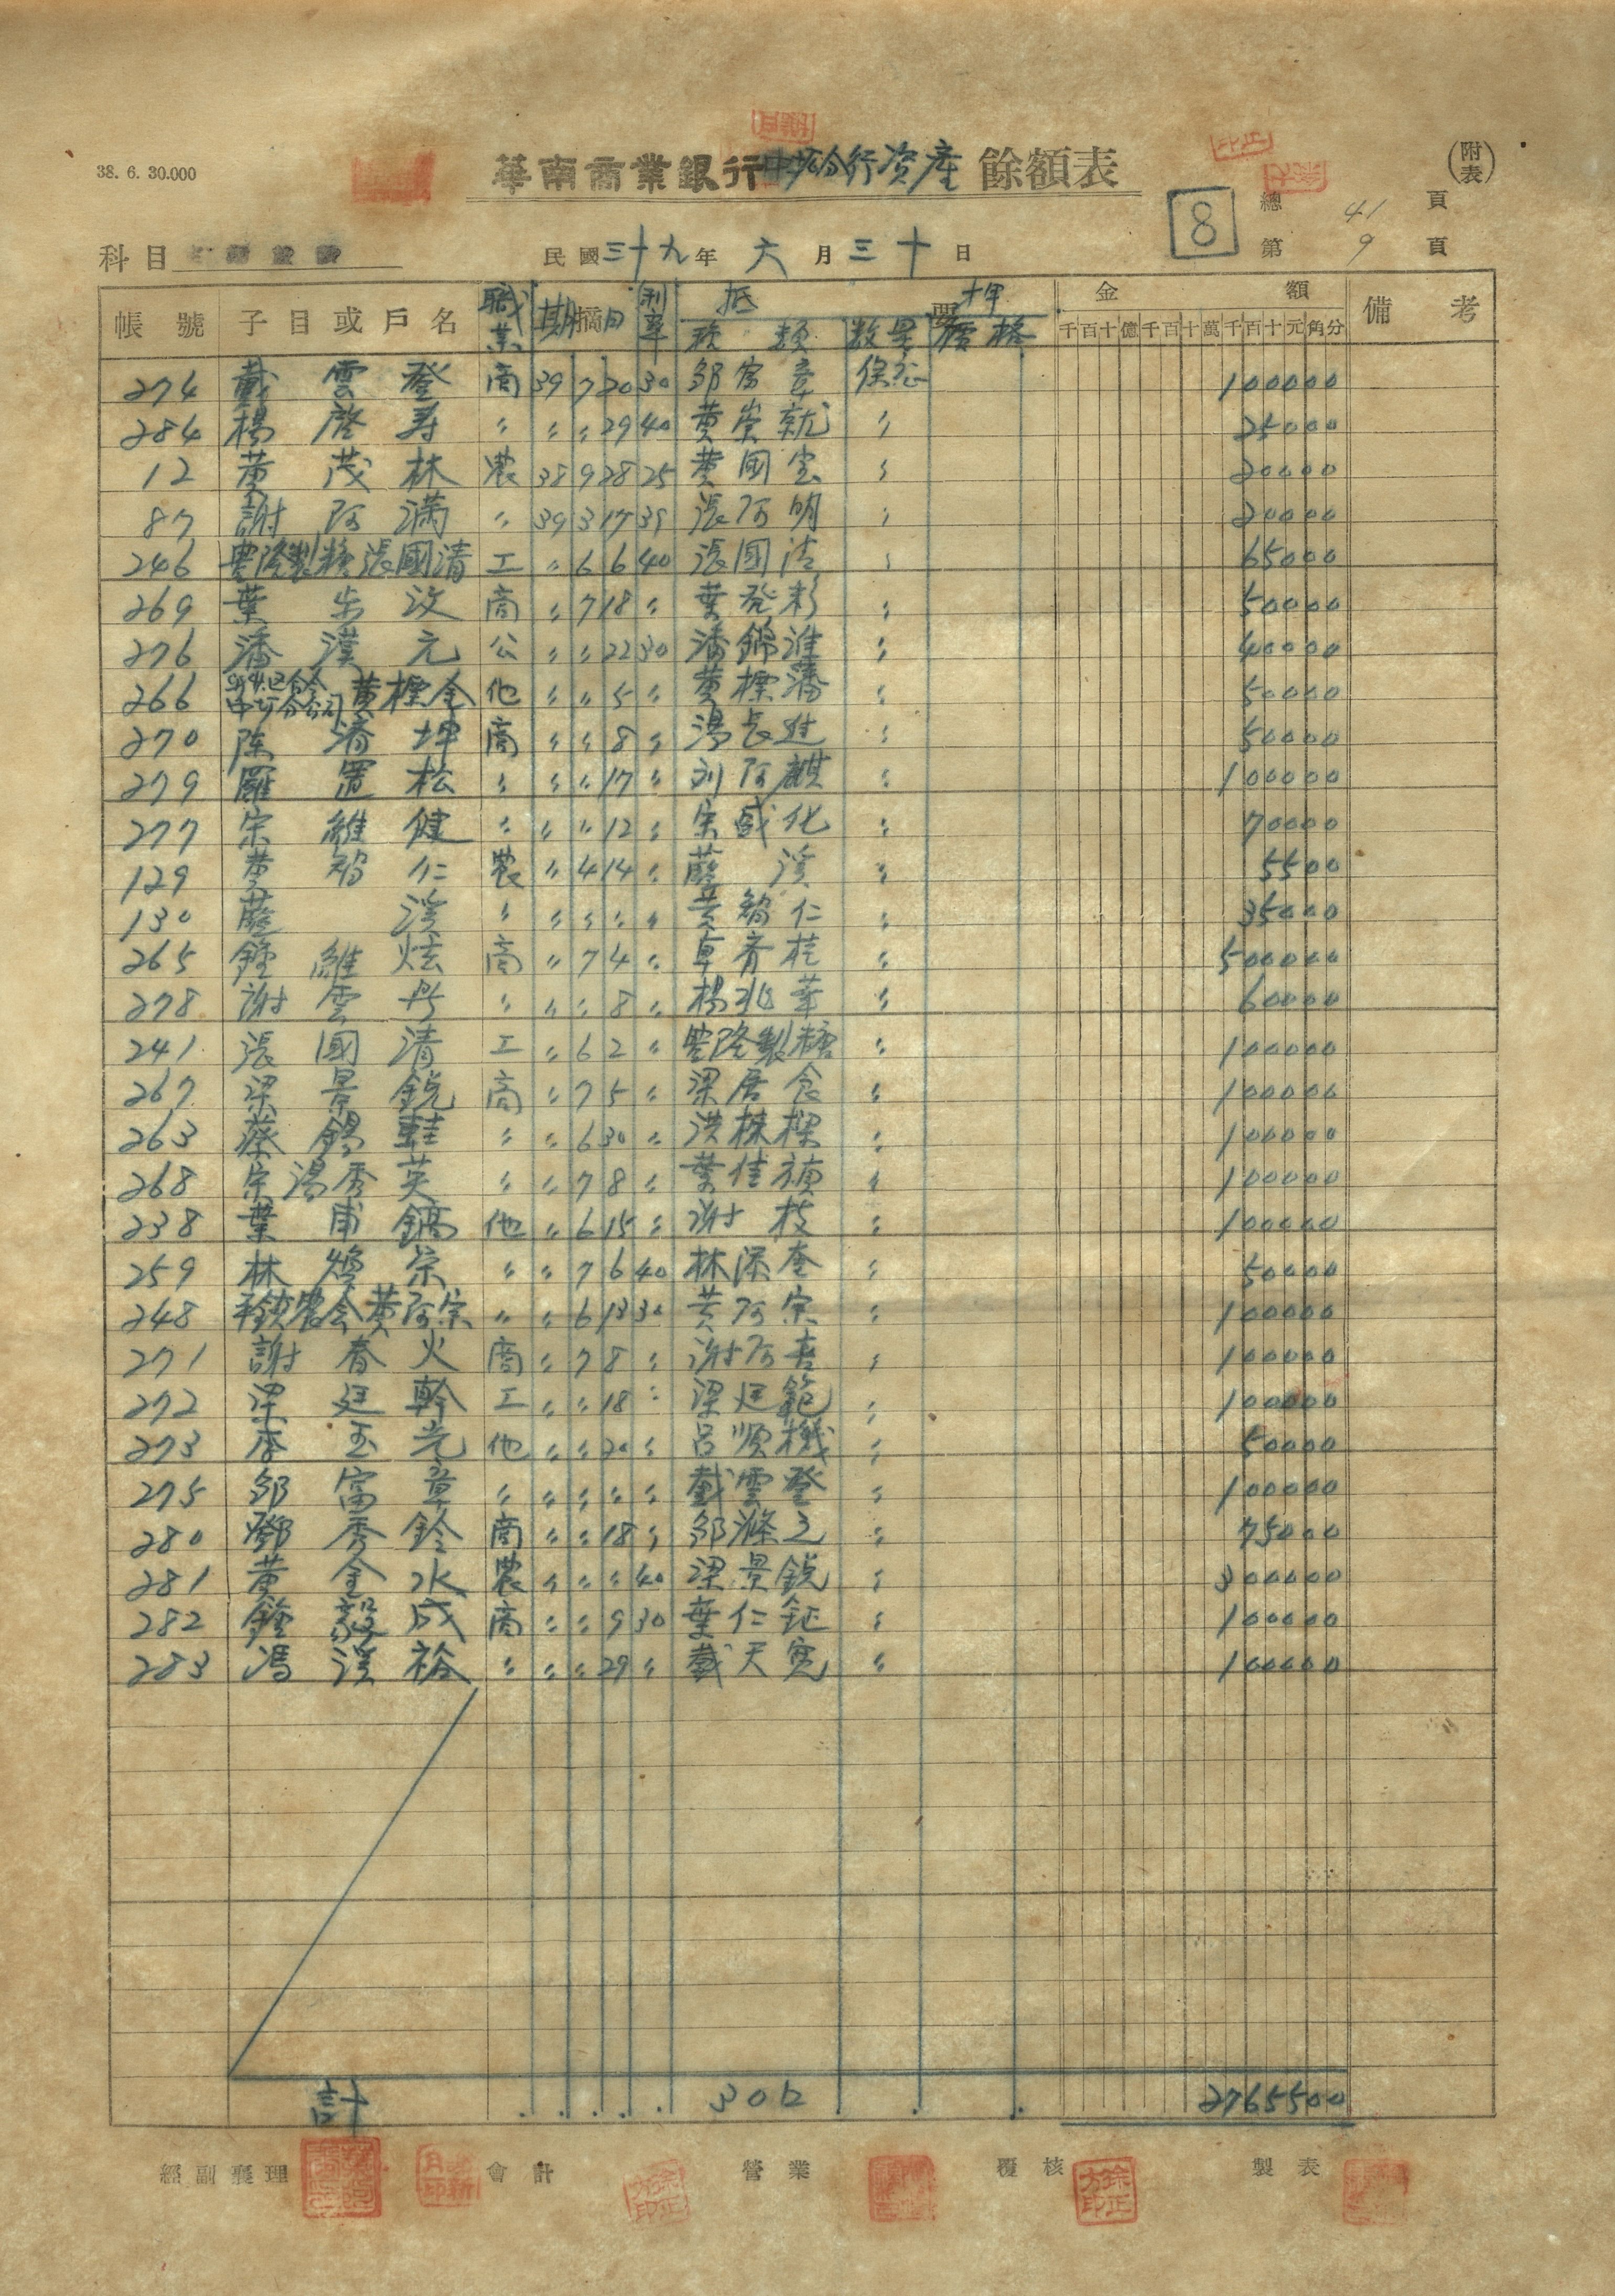 38. 6. 30.000
華南商業銀行中坜分行資產 餘額表
(附表)
8
總 41 頁
第 9 頁
科目
民國三十九年 六 月 三十 日
帳號 子目或戶名 職業 期日 摘 利率 抵 要 押 金額 備考
種類 数量 價格 千百十億千百十萬千百十元角分
274 戴雲登 商 39 7 20 30 邹富章 保証 100000
284 楊啓寿 〃 〃 〃 29 40 黄崇就 〃 25000
12 黄茂林 農 38 9 28 25 黄國宝 〃 20000
87 謝阿满 〃 39 3 17 39 張阿明 〃 20000
246 豊隆製糖張國清 工 〃 6 6 40 張國清 〃 65000
269 葉步汶 商 〃 7 18 〃 葉發彩 〃 50000
276 潘漢元 公 〃 〃 22 30 潘錦淮 〃 40000
266 中坜分公司 黄標金 他 〃 〃 5 〃 黄標藩 〃 50000
270 陈清坤 商 〃 〃 8 〃 湯長進 〃 50000
279 羅置松 〃 〃 〃 17 〃 刘阿麒 〃 100000
277 宋維健 〃 〃 〃 12 〃 宋盛化 〃 70000
129 黄智仁 農 〃 4 14 〃 藍溪 〃 5500
130 藍溪 〃 〃 〃 〃 〃 黄智仁 〃 35000
265 鍾維炫 商 〃 7 4 〃 卓育桂 〃 500000
278 謝雲丹 〃 〃 〃 8 〃 楊兆華 〃 60000
241 張國清 工 〃 6 2 〃 豊隆製糖 〃 100000
267 梁景銳 商 〃 7 5 〃 梁居食 〃 100000
263 蔡錫鞋 〃 〃 6 30 〃 洪棟樑 〃 100000
268 宋湯秀英 〃 〃 7 8 〃 葉佳禎 〃 100000
238 葉甫鎬 他 〃 6 15 〃 谢枝 〃 100000
259 林煥宗 〃 〃 7 6 40 林添奎 〃 50000
248 平鎮農会黄阿宗 〃 〃 6 13 30 黄阿宗 〃 100000
271 謝春火 商 〃 7 8 〃 谢阿吉 〃 100000
272 梁廷幹 工 〃 〃 18 〃 梁廷範 〃 100000
273 李玉光 他 〃 〃 20 〃 呂順機 〃 50000
275 邹富章 〃 〃 〃 〃 〃 戴雲登 〃 100000
280 鄧秀鈴 商 〃 〃 18 〃 邹滌之 〃 75000
281 黄金水 農 〃 〃 〃 40 梁景銳 〃 300000
282 鍾毅成 商 〃 〃 9 30 葉仁鉦 〃 100000
283 馮溪裕 〃 〃 〃 29 〃 戴天寛 〃 100000
計 30口 2765500
經副襄理 會計 營業 覆核 製表